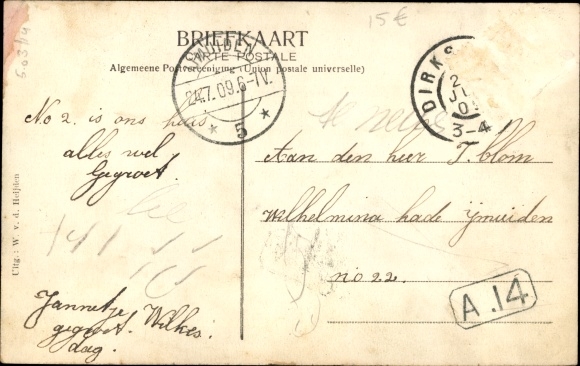 15 €
BRIEFKAART
CARTE POSTALE
Algemeene Postvereeniging (Union postale universelle)
IJMUIDEN
24.7.09.6-7V.
* 5 *
DIRKS
2
JL
0
3-4
5-03/9
No 2. is ons huis
alles wel
Gegroet.
Aan den heer T. blom
Welhelmina kade ymuiden
no 22.
A.14
Jannetje Wilkes.
gegroet.
dag.
Uitg.: W. v. d. Heijden